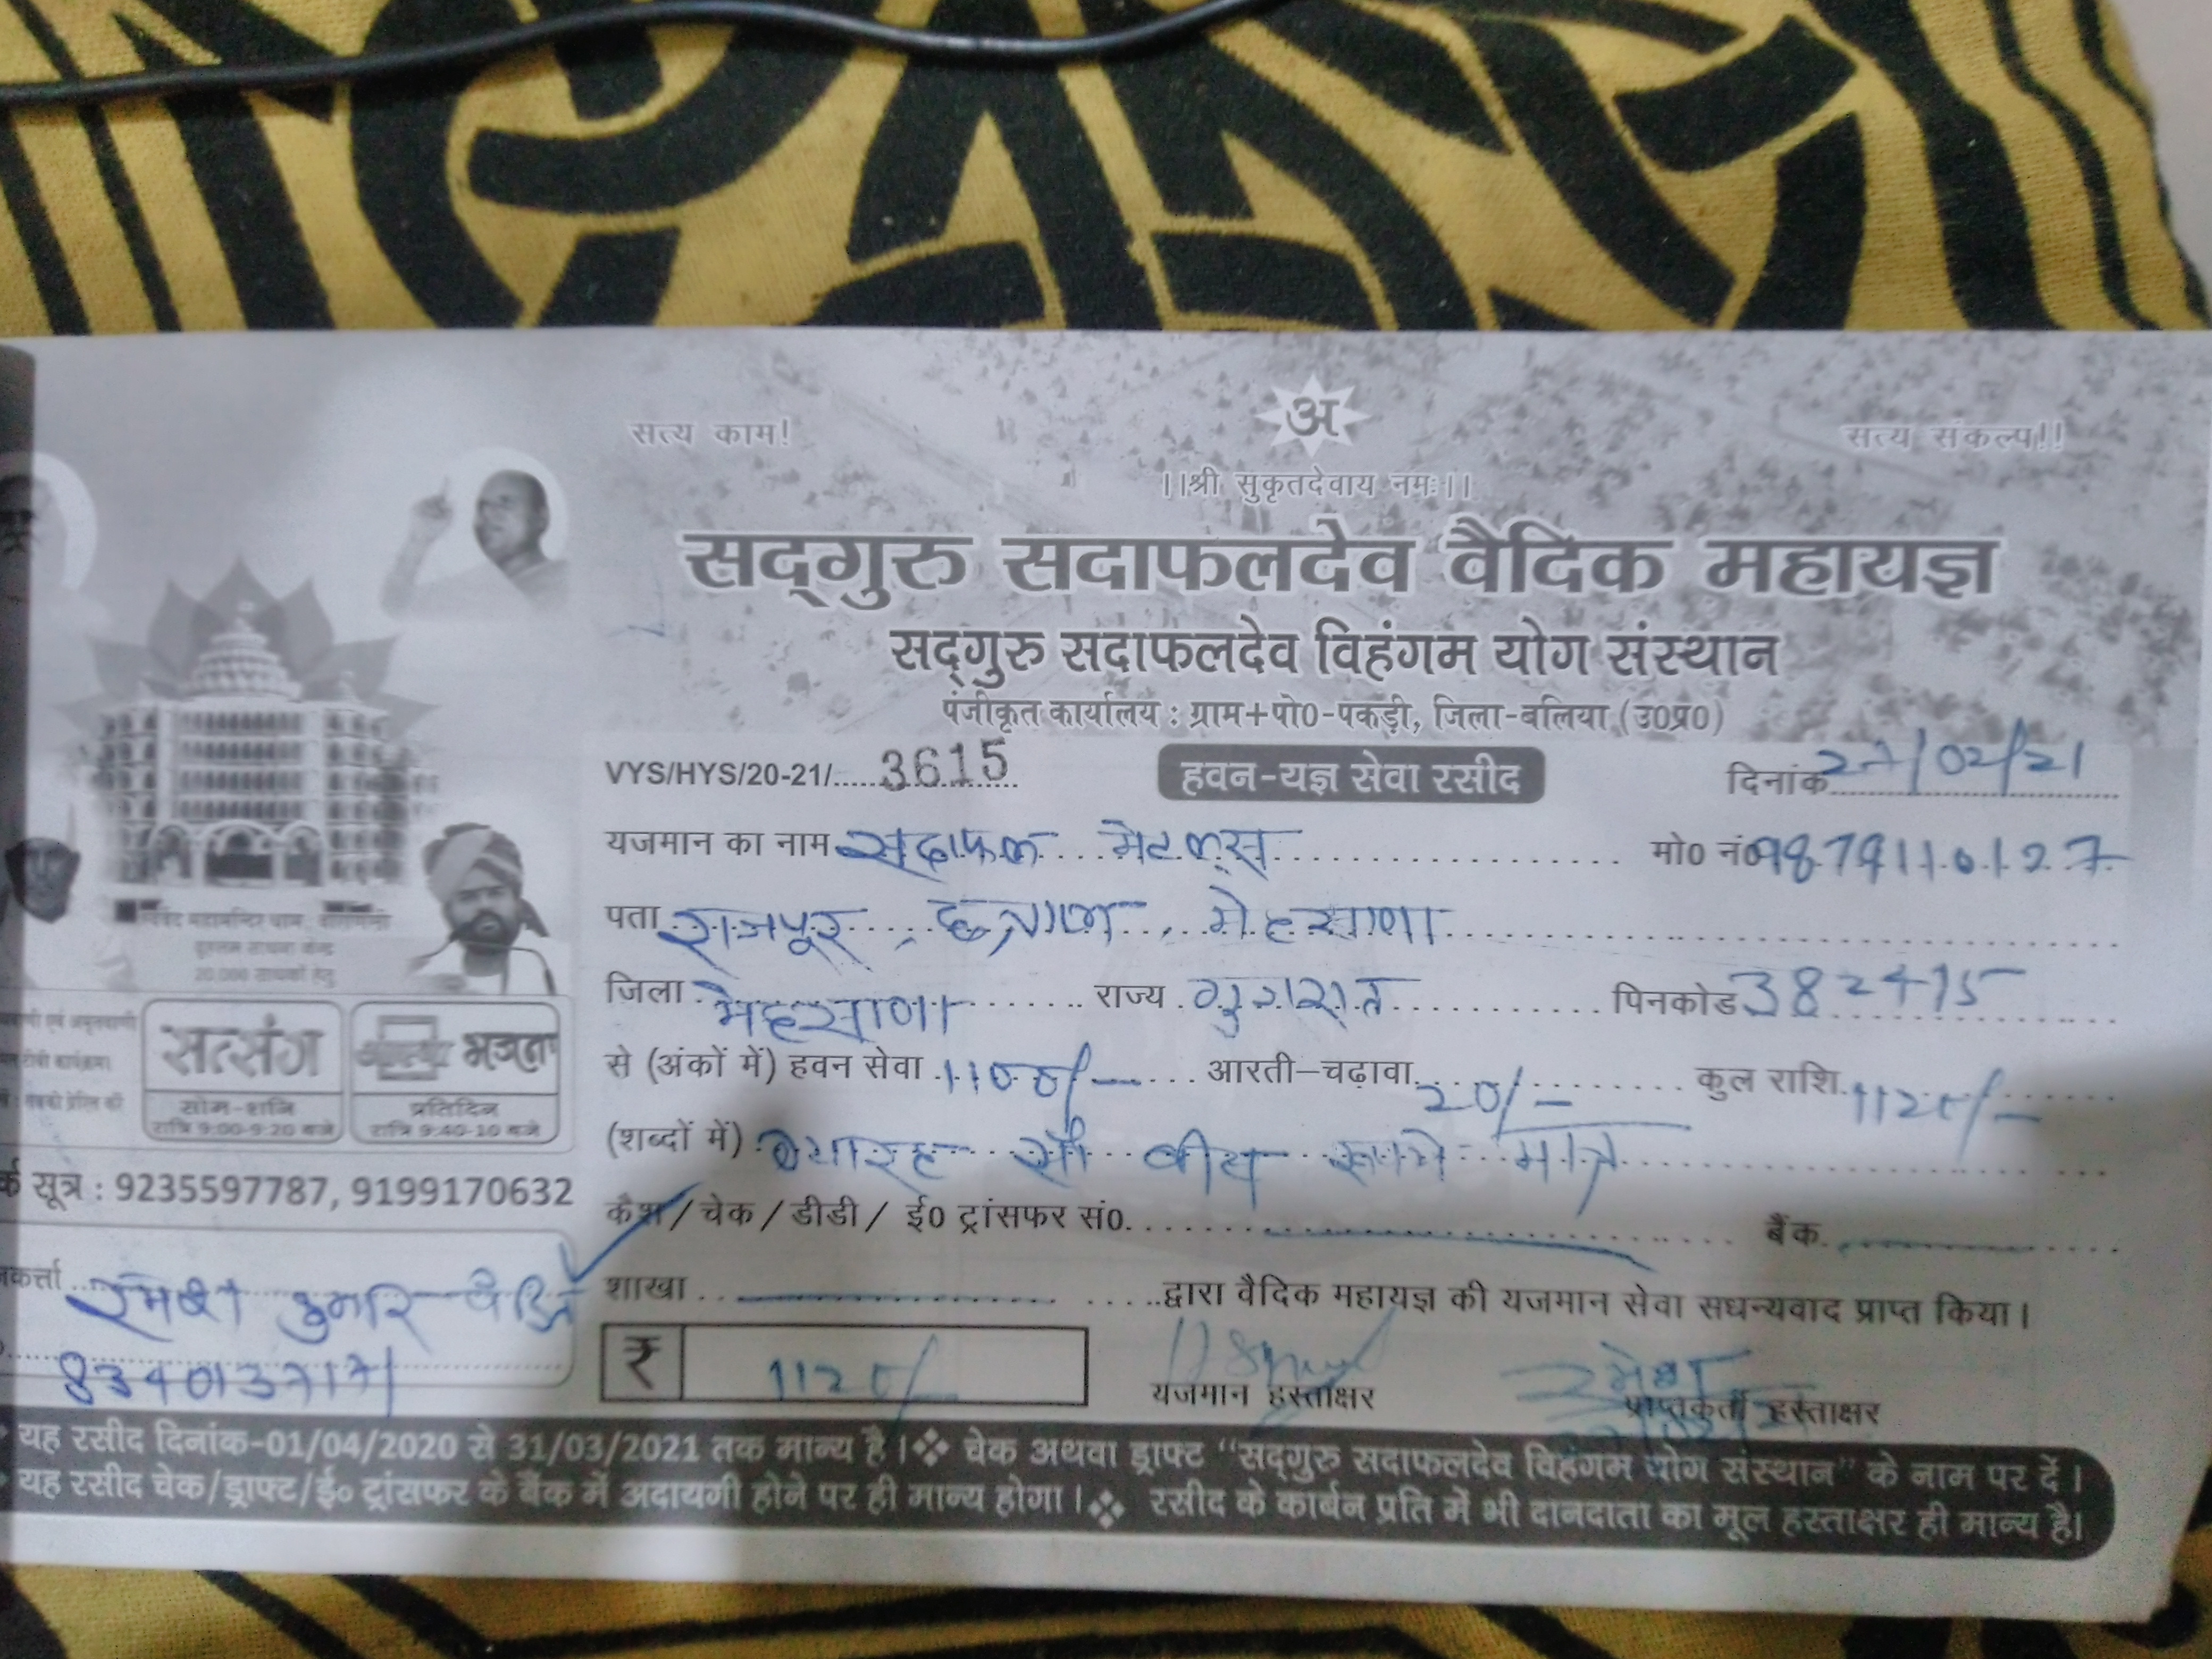 सत्य काम!
अ
सत्य संकल्प!!
।।श्री सुकृतदेवाय नमः।।
सद्गुरु सदाफलदेव वैदिक महायज्ञ
सद्गुरु सदाफलदेव विहंगम योग संस्थान
पंजीकृत कार्यालय : ग्राम+पो0-पकड़ी, जिला-बलिया (उ0प्र0)
VYS/HYS/20-21/..... 3615
हवन-यज्ञ सेवा रसीद
दिनांक 27/02/21
यजमान का नाम सदाफल मेटल्स मो0 नं0 9879110127
पता राजपूर, छत्राल, मेहसाणा
जिला मेहसाणा राज्य गुजरात पिनकोड 382715
से (अंकों में) हवन सेवा 1100/- आरती-चढ़ावा 20/- कुल राशि 1120/-
(शब्दों में) ग्यारह सौ बीस रूपये मात्र
कैश / चेक / डीडी / ई0 ट्रांसफर सं0. बैंक
शाखा द्वारा वैदिक महायज्ञ की यजमान सेवा सधन्यवाद प्राप्त किया।
₹ 1120/-
यजमान हस्ताक्षर
रमेश
प्राप्तकर्ता हस्ताक्षर
20.000 साधकों हेतु
सत्संग
सोम-शनि
रात्रि 9:00-9:20 बजे
भजन
प्रतिदिन
रात्रि 9:40-10 बजे
सूत्र : 9235597787, 9199170632
रमेश कुमार
यह रसीद दिनांक-01/04/2020 से 31/03/2021 तक मान्य है। ❖ चेक अथवा ड्राफ्ट "सद्गुरु सदाफलदेव विहंगम योग संस्थान" के नाम पर दें।
यह रसीद चेक/ड्राफ्ट/ई० ट्रांसफर के बैंक में अदायगी होने पर ही मान्य होगा। ❖ रसीद के कार्बन प्रति में भी दानदाता का मूल हस्ताक्षर ही मान्य है।